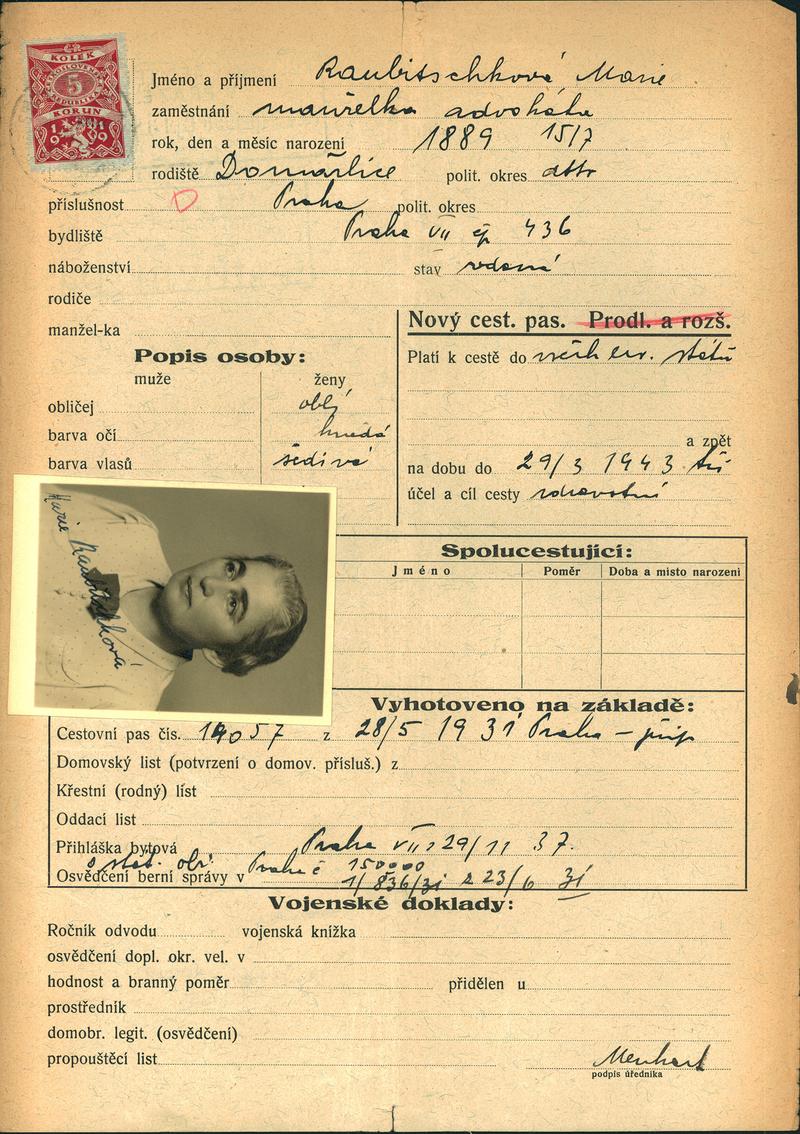 ČR
KOLEK
5
KORUN
19
Jméno a příjmení Raubitschková Marie
zaměstnání manželka advokáta
rok, den a měsíc narození 1889 15/7
rodiště Domažlice polit. okres dtto
příslušnost D Praha polit. okres
bydliště Praha VII čp 436
náboženství stav vdaná
rodiče
manžel-ka
Nový cest. pas. Prodl. a rozš.
Platí k cestě do všech ev. států
a zpět
na dobu do 29/3 1943
účel a cíl cesty zdravotní
Popis osoby:
muže ženy
obličej oblý
barva očí hnědá
barva vlasů šedivé
Marie Raubitschková
Spolucestující:
Jméno Poměr Doba a místo narození
Vyhotoveno na základě:
Cestovní pas čís. 19057 z 28/5 1931 Praha -
Domovský list (potvrzení o domov. přísluš.) z
Křestní (rodný) líst
Oddací list
Přihláška bytová Praha VII z 29/11 37.
o stát. obč. Praha č 150000
Osvědčení berní správy v 1/836/31 z 23/6 31
Vojenské doklady:
Ročník odvodu vojenská knížka
osvědčení dopl. okr. vel. v
hodnost a branný poměr přidělen u
prostředník
domobr. legit. (osvědčení)
propouštěcí list
Menhart
podpis úředníka